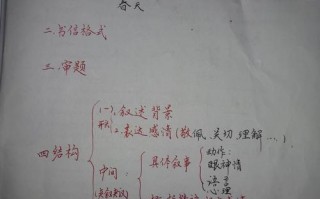 春天
二.书信格式
三.审题
(一).叙述背景
形
2.表达感情(敬佩、关切、理解…)
四结构
中间:
具体叙事
动作:
眼神情
语言
心理